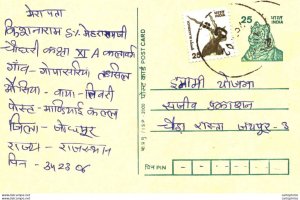 मेरा पता
किशनाराम S/o मेहराजजी
चौधरी कक्षा XI A कलावर्ग
गाँव - गोपासरिया तहसिल
ओसियां - वाया - तिवरी
पोस्ट -
जिला - जोधपुर
राज्य - राजस्थान
पिन - 342306
पोस्ट कार्ड POST CARD
25
भारत INDIA
25
ईनामी योजना
संजीव प्रकाशन
चौड़ा रास्ता जयपुर - 3
पिन PIN